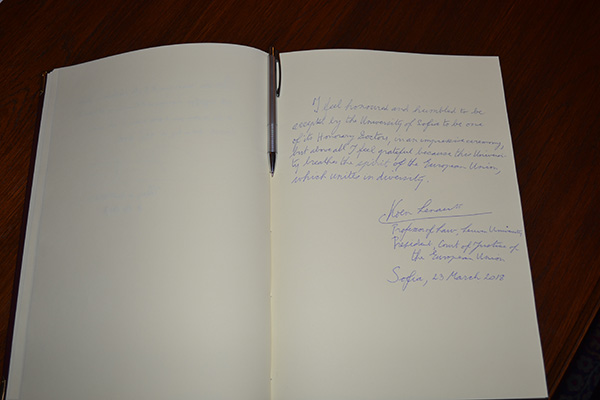 I feel honoured and humbled to be
accepted by the University of Sofia to be one
of its Honorary Doctors, in an impressive ceremony,
but above all I feel grateful because this Universi
ty breathes the spirit of the European Union,
which unites in diversity.
Koen Lenaerts
Professor of Law, Leuven University
President, Court of Justice of
the European Union
Sofia, 23 March 2018